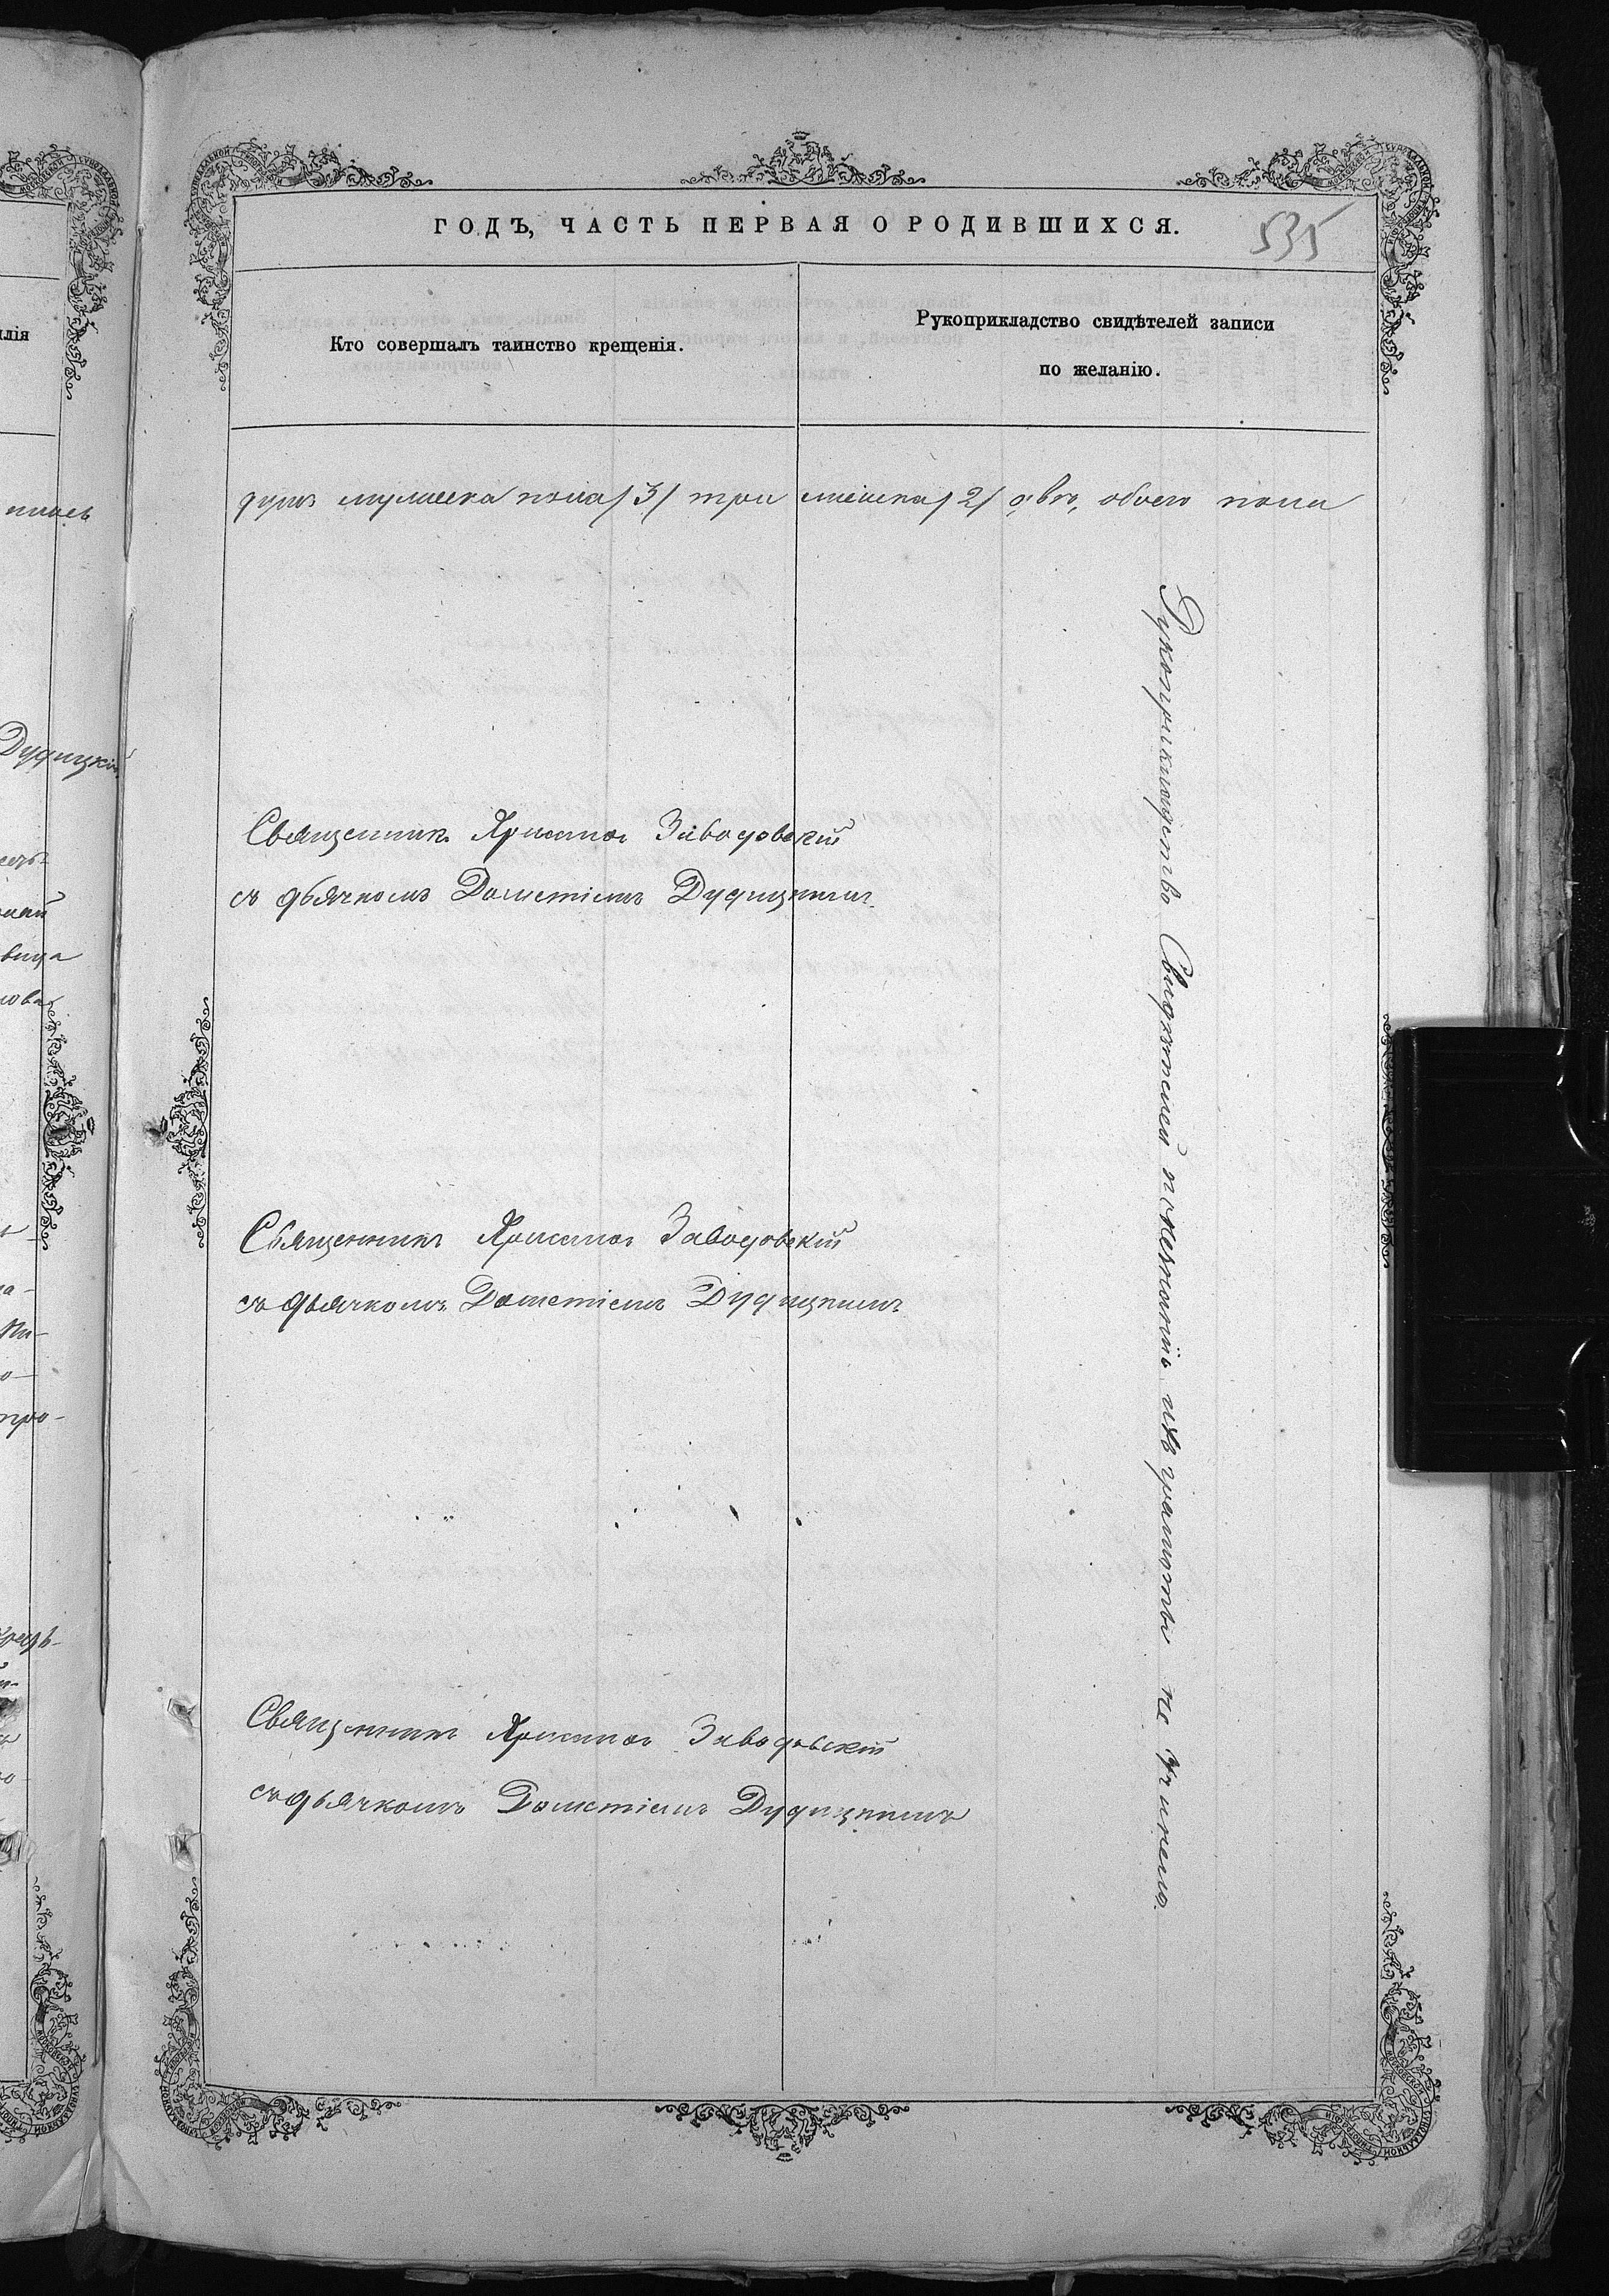 ГОДЪ, ЧАСТЬ ПЕРВАЯ О РОДИВШИХСЯ.
535
Кто совершалъ таинство крещенія.
Рукоприкладство свидѣтелей записи
по желанію.
душъ мужеска пола /3/ три женска /2/ двѣ, обоего пола
Священникъ Заводовскій
съ дьячкомъ Дометіемъ Дудицкимъ
Священникъ Заводовскій
съ дьячкомъ Дометіемъ Дудицкимъ
Священникъ Заводовскій
съ дьячкомъ Дометіемъ Дудицкимъ
Рукоприкладство Свидѣтелей по незнанію ихъ грамоты не учинено.
лія
Дудицкій
вица